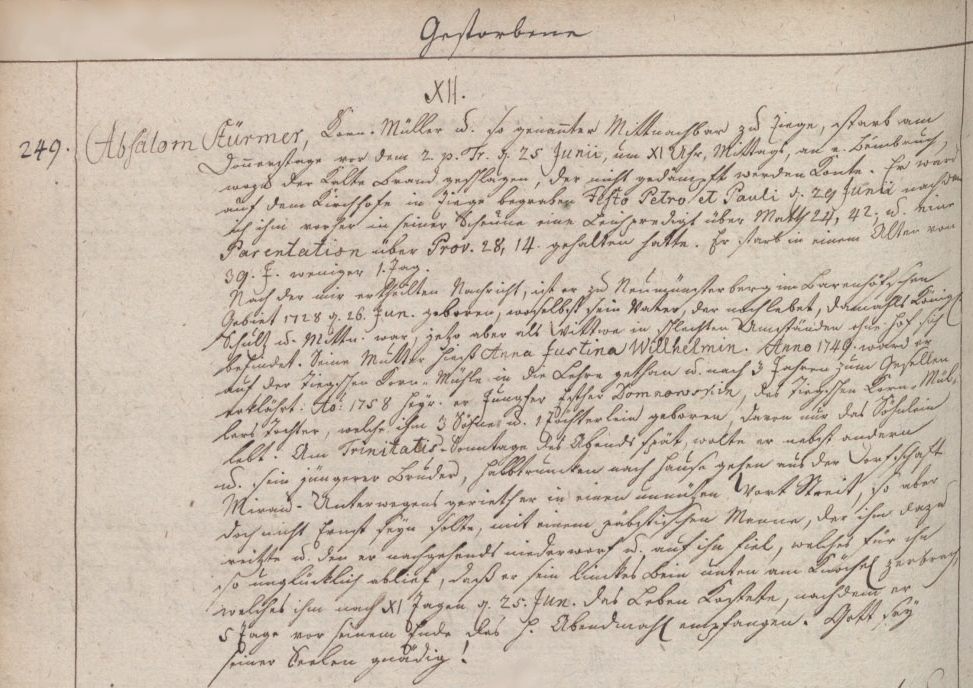 Gestorbene
XII.
249. Absalom Stürmer, Korn-Müller u. so genannter Mittnachbar zu Tiege, starb am
Donnerstage vor dem 2. p. Tr. d. 25 Junii, um XI Uhr, Mittags, an e. Beinbruch,
wozu der Kalte Brand geschlagen, der nicht gedämpft werden Konte. Er ward
auf dem Kirchhofe in Tiege begraben Festo Petri et Pauli d. 29 Junii nachdem
ich ihm vorher in seiner Scheune eine Leichpredigt über Matth 24, 42. u. eine
Parentation über Prov. 28, 14. gehalten hatte. Er starb in einem Alter von
39. J. weniger 1. Tag.
Nach der mir ertheilten Nachricht, ist er zu Neumünsterberg im Barenhöfschen
Gebiet 1728 d. 26. Jun. geboren, woselbst sein Vater, der noch lebet, damahls Königl.
Schultz u. Mittn. war, jetzo aber als Wittwer in schlechten Umständen ohne Hof sich
befindet. Seine Mutter hiess Anna Justina Willhelmin. Anno 1749. ward er
auf der Tiegschen Korn-Mühle in die Lehre gethan u. nach 3 Jahren zum Gesellen
erklährt. Ao: 1758 heyr. er Jungfer Esther Domnowskin, des Tiegschen Korn-Mül-
lers Tochter, welche ihm 3 Söhne u. 1 Töchterlein geboren, davon nur das Söhnlein
lebt. Am Trinitatis-Sonntage des Abends spät, wolte er nebst andern
u. sein jüngerer Bruder, halbtruncken nach Hause gehen aus der Dorfschaft
Mirau. Unterwegens gerieth er in einen unnützen Wort Streit, so aber
doch nicht Ernst seyn solte, mit einem päbstischen Manne, der ihn dazu
reitzte u. den er nachgehends niederworf u. auf ihn fiel, welches für ihn
so unglücklich ablief, daß er sein linckes Bein unten am Knöchel zerbrach,
welches ihm nach XI Tagen d. 25. Jun. das Leben Kostete, nachdem er
5 Tage vor seinem Ende das H. Abendmahl empfangen. Gott sey
seiner Seelen gnädig!